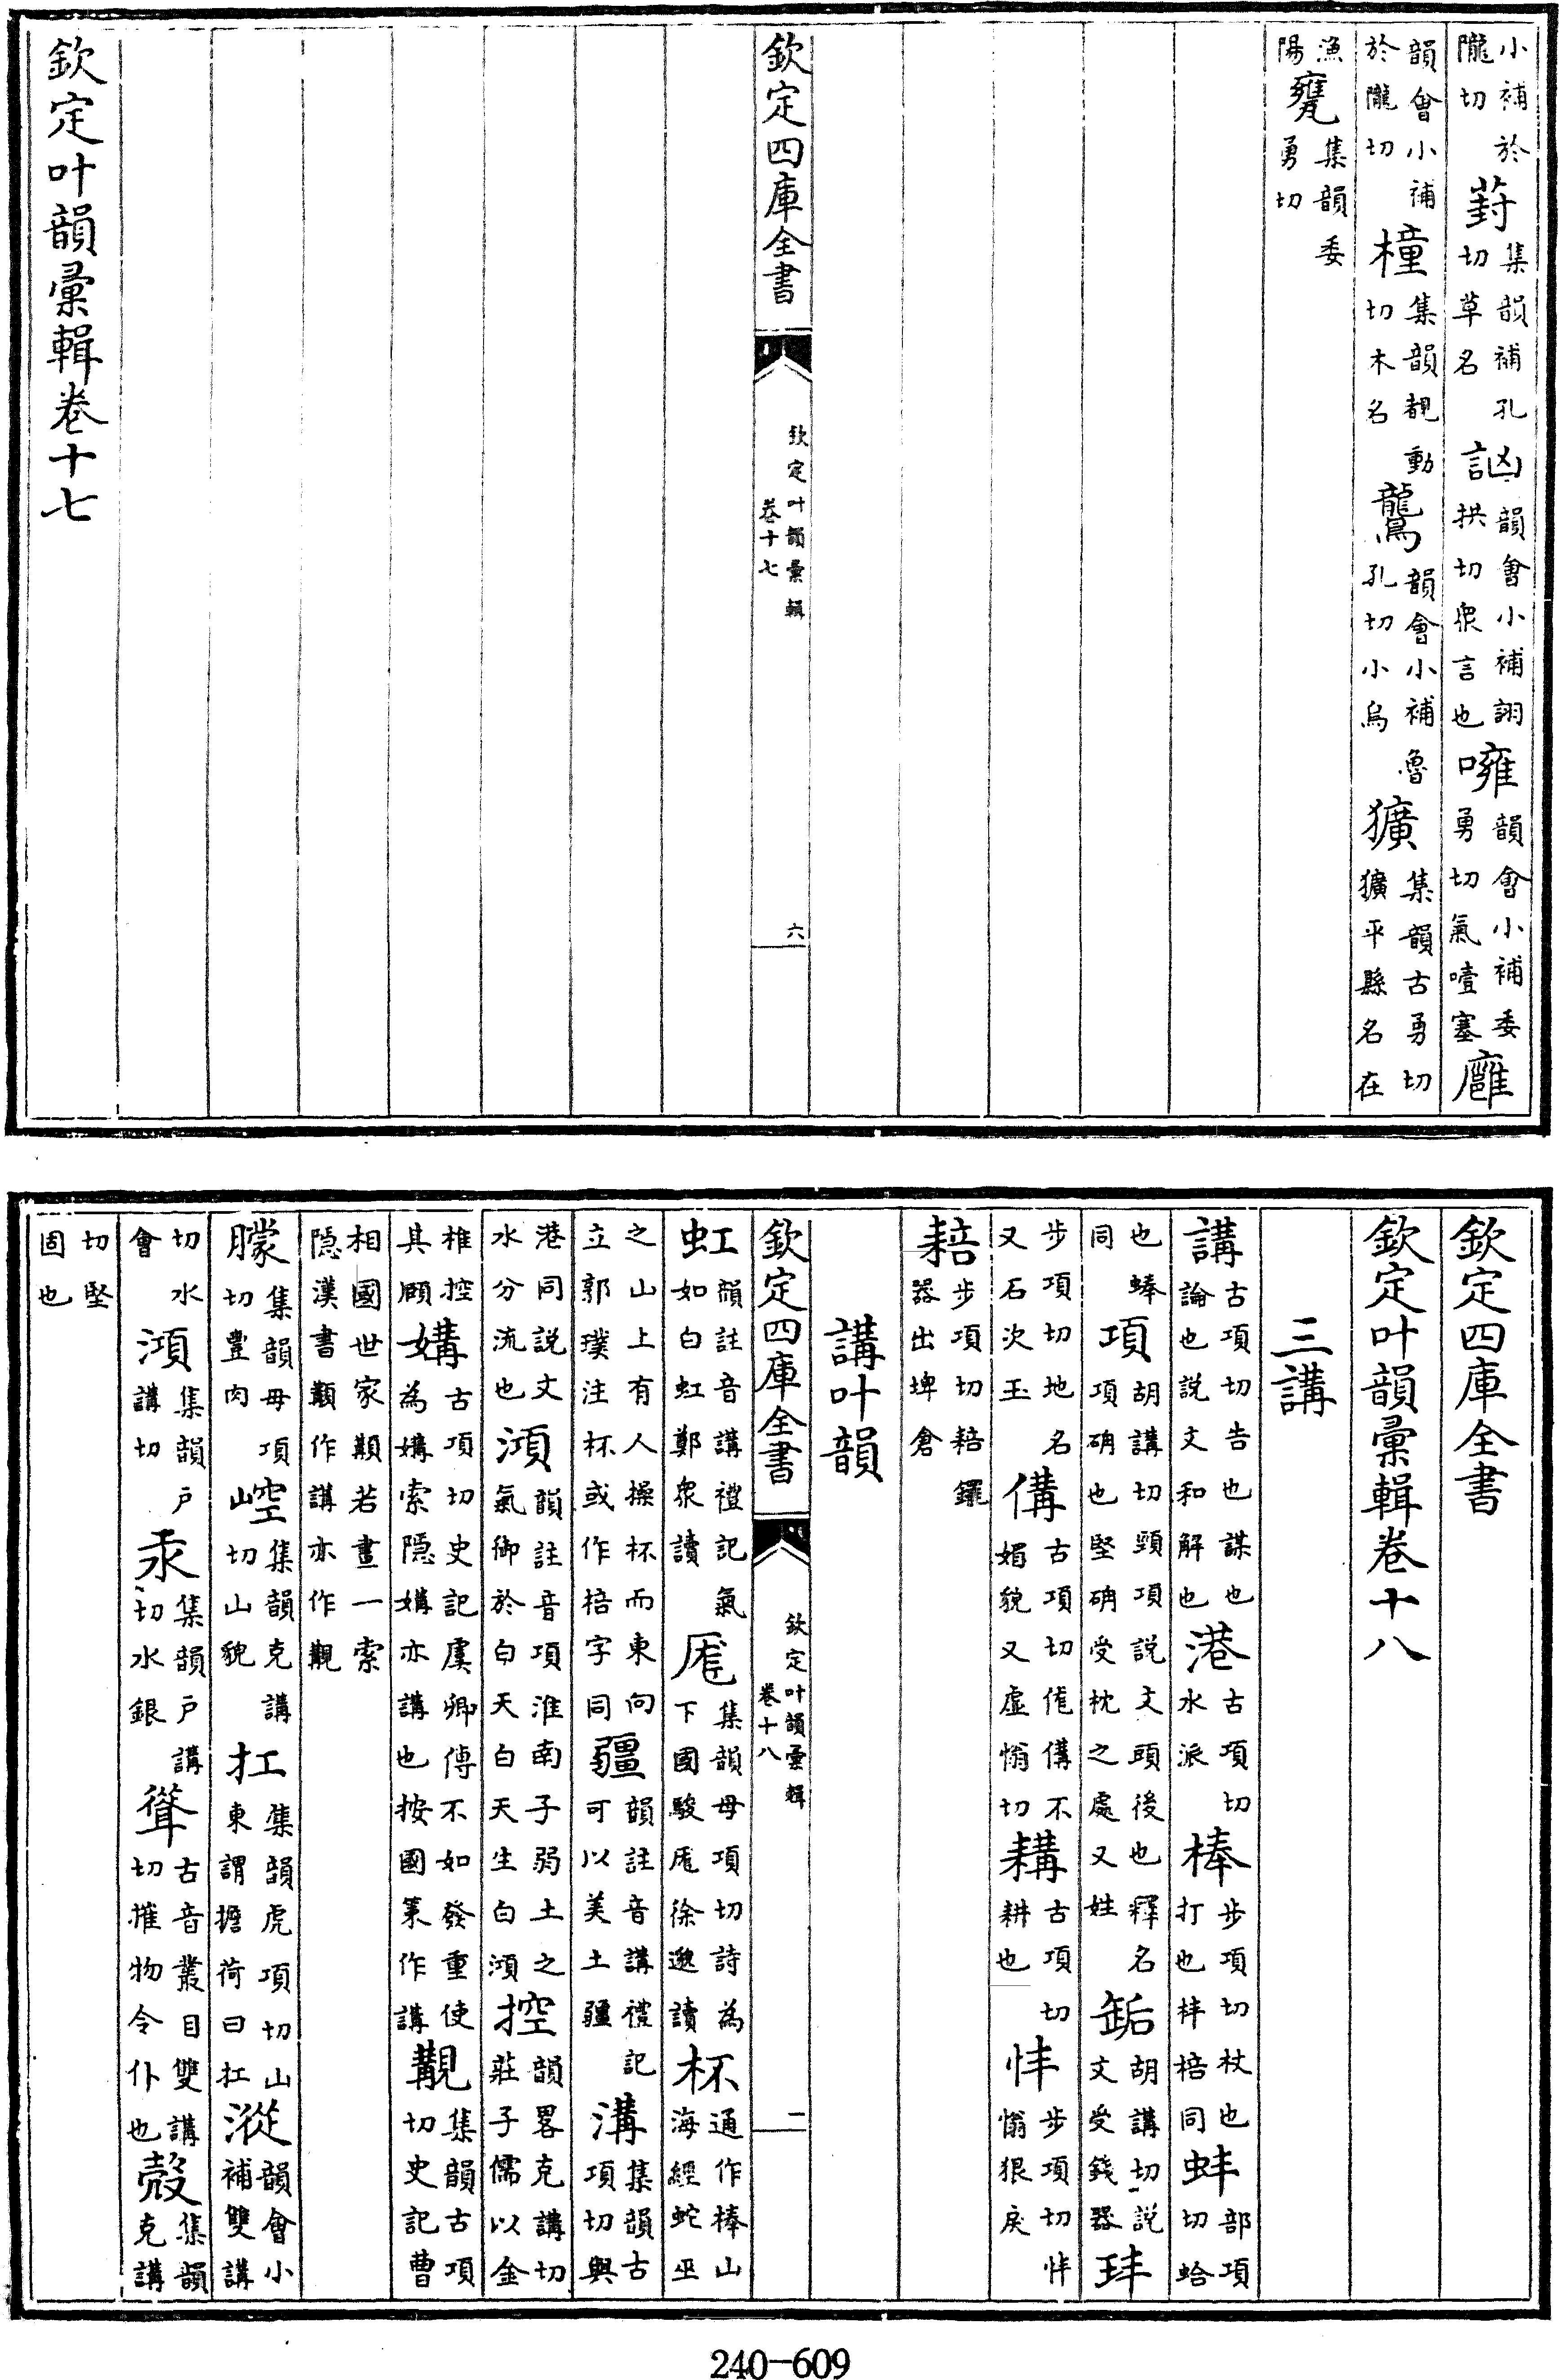 小補於隴切 葑集韻補孔切草名 訩韻會小補詡拱切衆言也 噰韻會小補委勇切氣噎塞 廱
韻會小補於隴切 橦集韻覩動切木名 鸗韻會小補魯孔切小鳥 獷集韻古勇切獷平縣名在
漁陽 㽫集韻委勇切
欽定四庫全書 欽定叶韻彙輯 卷十七 六
欽定叶韻彙輯卷十七
欽定四庫全書
欽定叶韻彙輯卷十八
三講
講古項切告也謀也論也説文和解也 港古項切水派 棒步項切杖也打也柈棓同 蚌部項切蛤
也蜯同 項胡講切頸項説文頭後也釋名項确也堅确受枕之處又姓 缿胡講切説文受錢器 玤
步項切地名又石次玉 傋古項切㑽傋不媚貌又虛慃切 耩古項切耕也 㤶步項切㤶慃狠戾
䎧步項切䎧䥯器出埤倉
講叶韻
欽定四庫全書 欽定叶韻彙輯 卷十八 一
虹韻註音講禮記氣如白虹鄭衆讀 厖集韻母項切詩為下國駿厖徐邈讀 杯通作棒山海經蛇巫
之山上有人操杯而東向立郭璞注杯或作棓字同 疆韻註音講禮記可以美土疆 溝集韻古項切與
港同説文水分流也 澒韻註音項淮南子弱土之氣御於白天白天生白澒 控韻畧克講切莊子儒以金
椎控其頤 媾古項切史記虞卿傳不如發重使為媾索隱媾亦講也按國策作講 覯集韻古項切史記曹
相國世家顜若畫一索隱漢書顜作講亦作覯
朦集韻母項切豐肉 崆集韻克講切山貌 扛集韻虎項切山東謂擔荷曰扛 漎韻會小補雙講
切水會 澒集韻戶講切 汞集韻戶講切水銀 㨦古音叢目雙講切摧物令仆也 㱿集韻克講
切堅固也
240-609